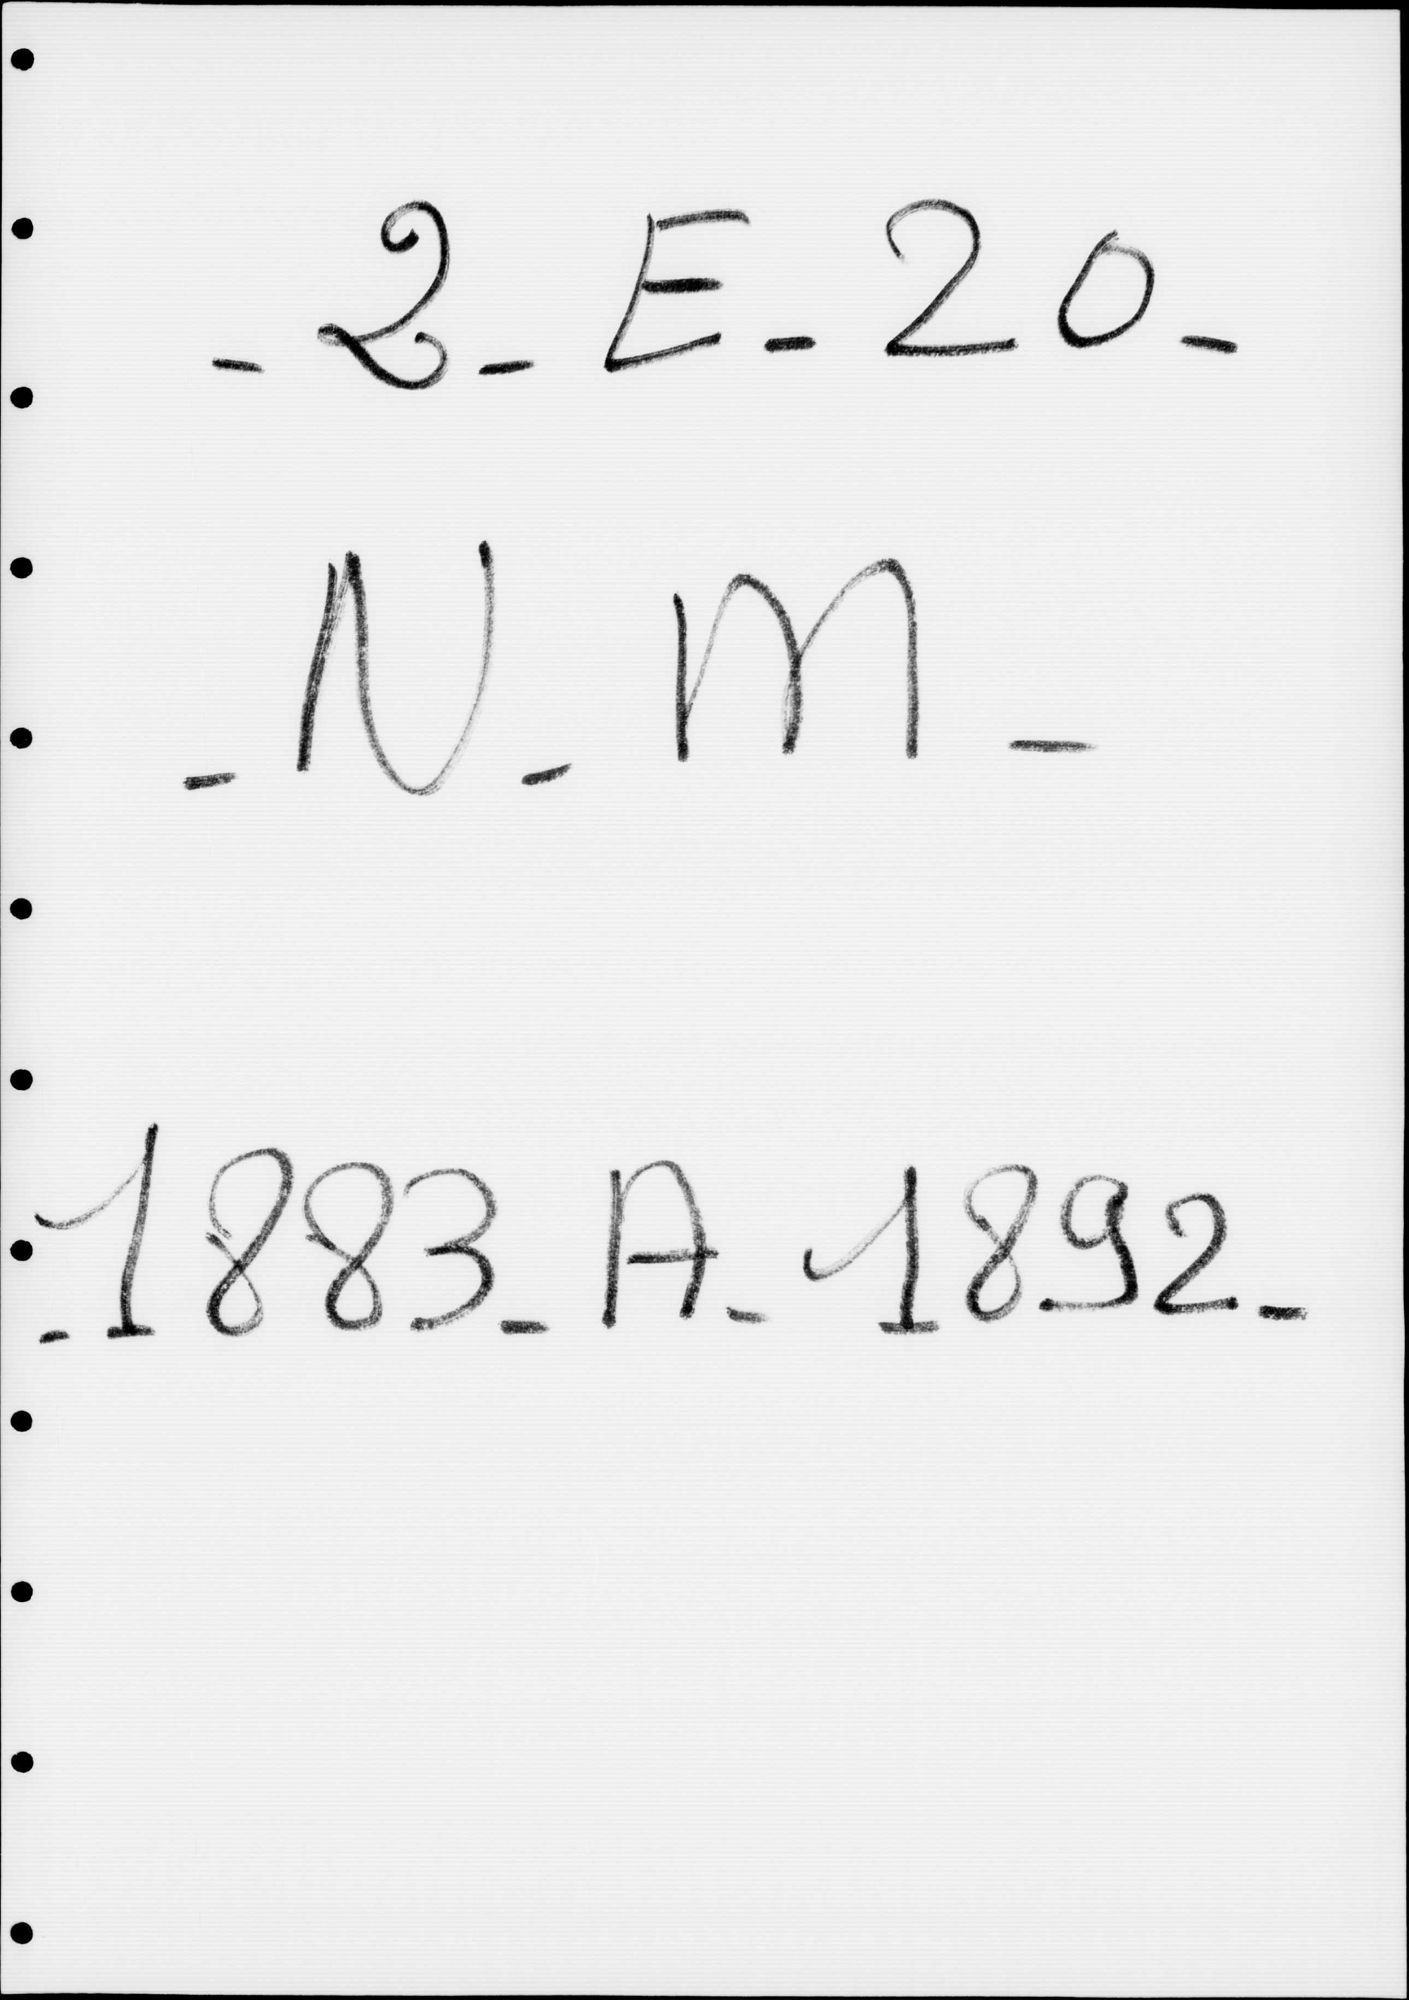 - 2 - E - 20 -
- N - M -
- 1883 - A - 1892 -